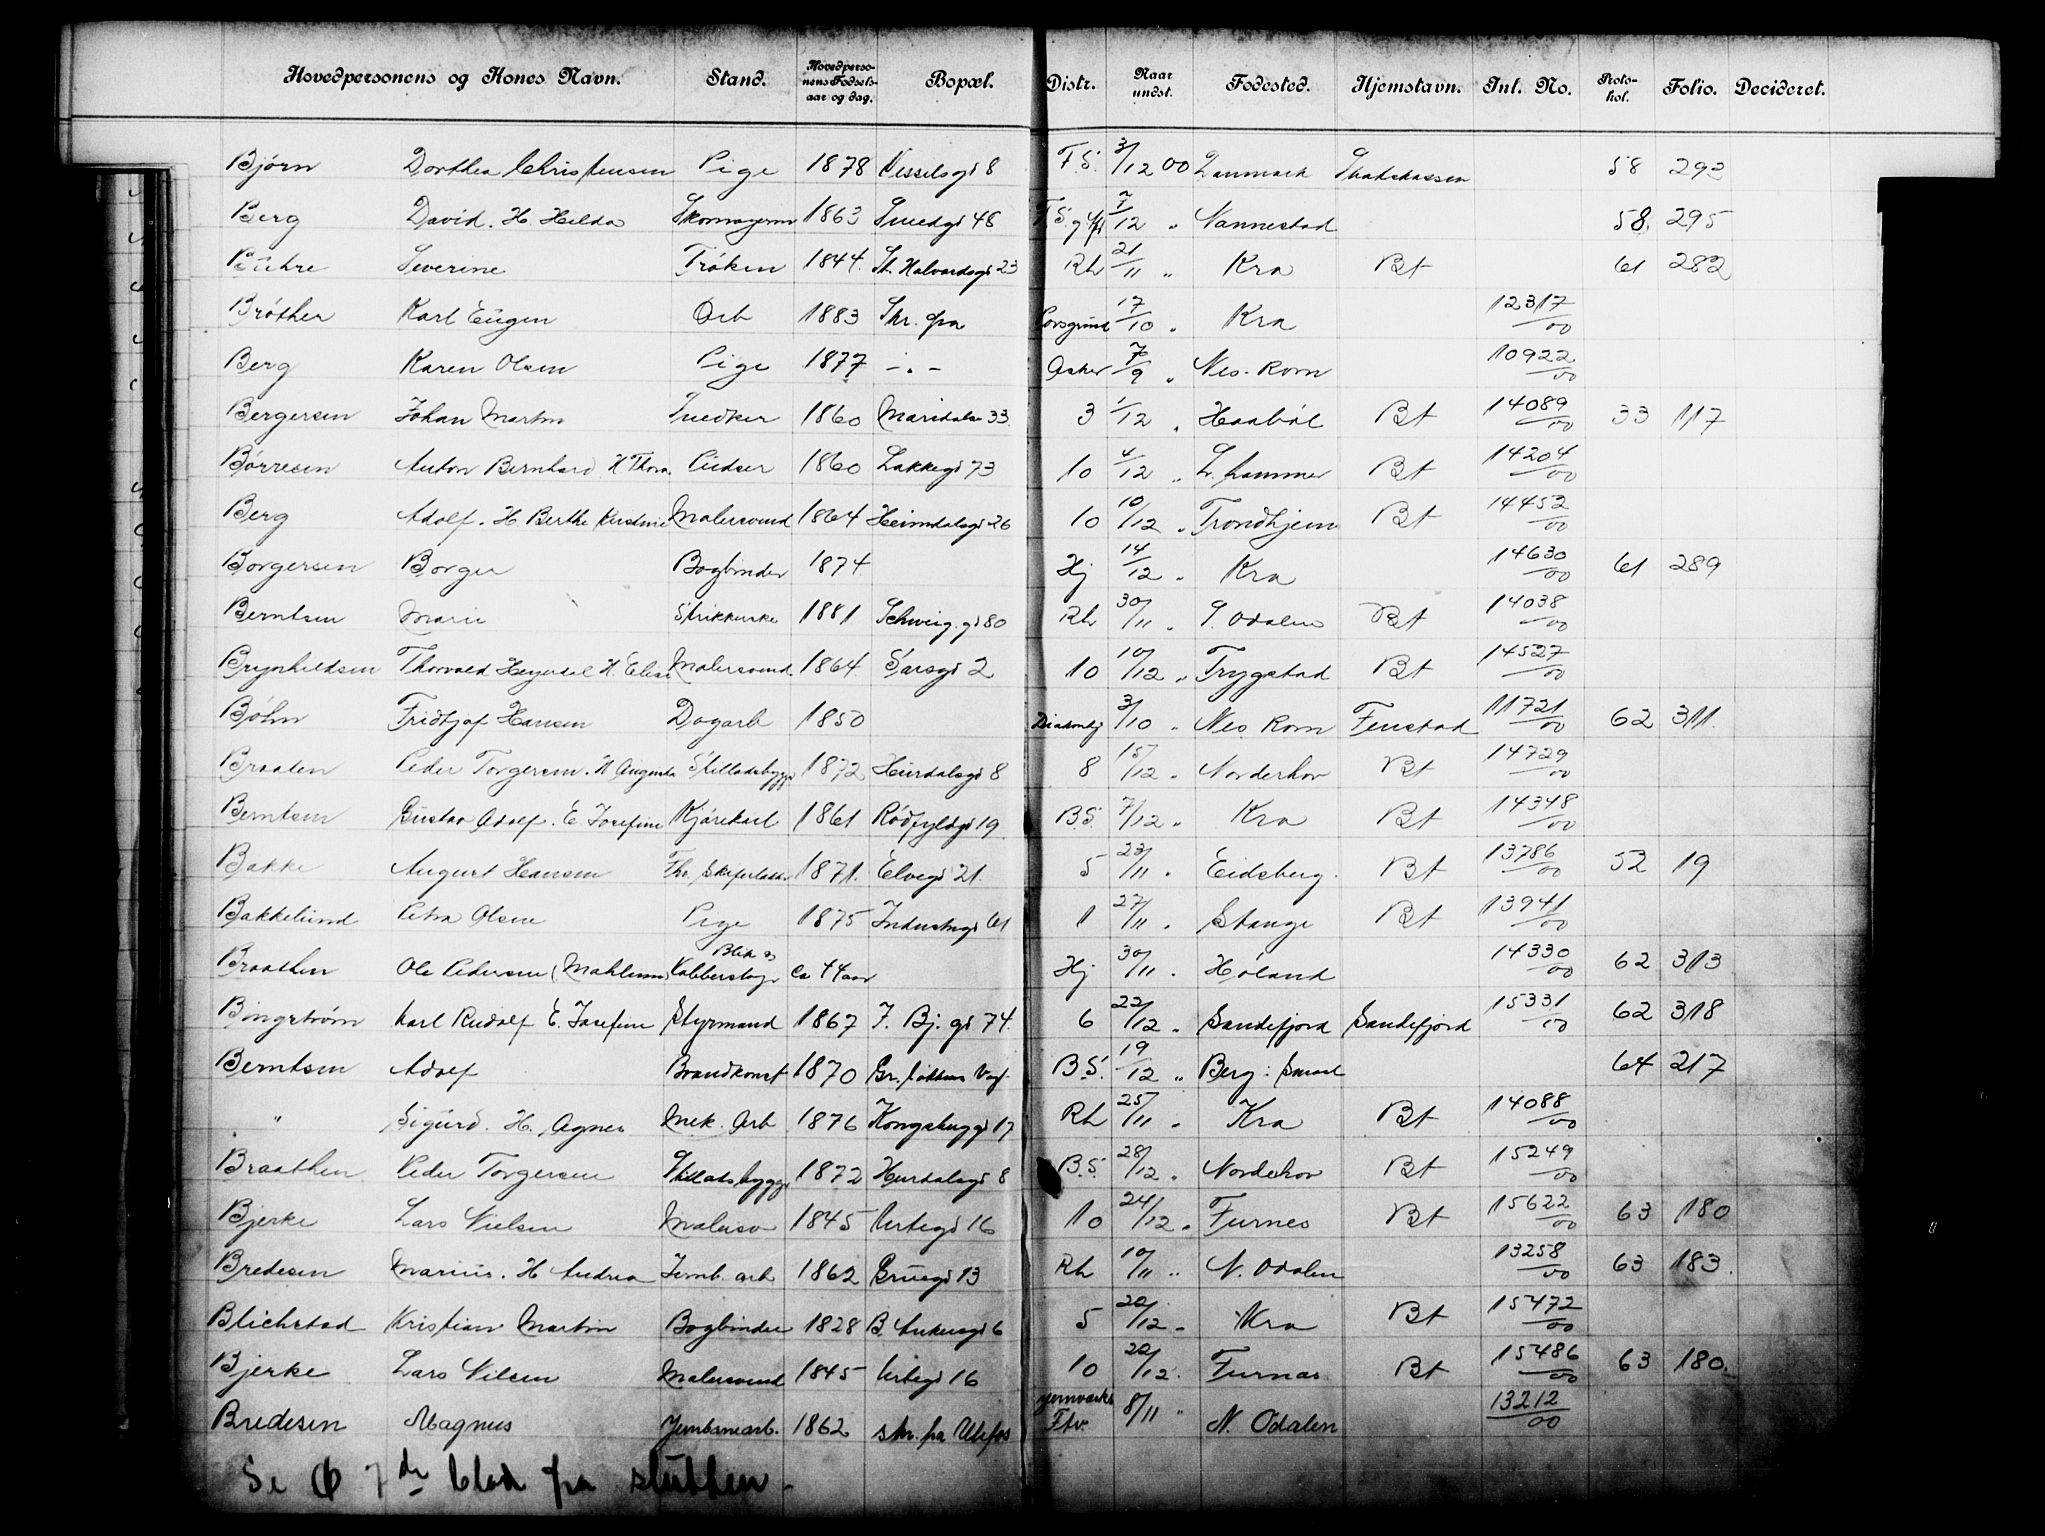 Hovedpersonens og Kones Navn. Stand. Hovedpersonens Fødselsaar og dag. Bopæl. Distr. Naar undst. Fødested. Hjemstavn. Int. No. Protokol. Folio. Decideret.
Bjørn Dorthea Christensen Pige 1878 Wesselsgd 8 F.S. 3/12 00 Danmark 58 292
Berg David. H. Hilda 1863 Smedgd 48 7/12 " Nannestad 58. 295
Bühre Severine Frøken 1844. St. Halvardsgd 23 Rh 21/11 " Kra Bt 61 282
Brøther Karl Eugen Arb 1883 Skr. fra Porsgrund 17/10 " Kra 12317/00
Berg Karen Olsen Pige 1877 -"- Asker 7/9 " Nes. Rom 10922/00
Bergersen Johan Martin Snedker 1860 Maridalsv 33. 3 1/12 " Haabøl Bt 14089/00 33 117
Børresen Anton Bernhard H Thora Pudser 1860 Lakkegd 73 10 4/12 " L. hammer Bt 14204/00
Berg Adolf. H. Berthe Kristine Malersvend 1864 Heimdalsgd 26 10 10/12 " Trondhjem Bt 14452/00
Borgersen Borger Bogbinder 1874 Hj 14/12 " Kra 14630/00 61 289
Berntsen Marie Strikkerske 1881 Schweig. gd 80 Rh 30/11 " S. Odalen Bt 14038/00
Brynhildsen Thorvald Heyerdal H. Elise Malersvend 1864. Sarsgd 2 10 10/12 " Trygstad Bt 14527/00
Bøhn Fridtjof Hansen Dagarb 1850 Diakonhj 3/10 " Nes Rom Fenstad 11721/00 62 311.
Braaten Peder Torgersen. H Augusta Stilladsbygger 1872 Hurdalsgd 8 8 15/12 " Norderhov Bt 14729/00
Berntsen Gustav Adolf. E. Josefine Kjørekarl 1861 Rødfyldgd 19 B.S. 7/12 " Kra Bt 14348/00
Bakke August Hansen Fhv. Skifertækker 1871. Elvegd 21. 5 23/11 " Eidsberg. Bt 13786/00 52 19
Bakkelund Petra Olsen Pige 1875 Industrigd 61 1 27/11 " Stange Bt 13941/00
Braathen Ole Pedersen (Mahlum) Blik og Kobberslagr ca 44 aar Hj 30/11 " Høland 14330/00 62 313
Bingstrøm Karl Rudolf E. Josefine Styrmand 1867 T. Bj. gd 74. 6 22/12 " Sandefjord Sandefjord 15331/00 62 318
Berntsen Adolf Brandkonst 1870 B.S. 19/12 " Berg i Smaal 64 217
" Sigurd. H. Agnes Mek. Arb 1876 Kongsbyggd 17 Rh 25/11 " Kra Bt 14088/00
Braathen Peder Torgersen Stilladsbygger 1872 Hurdalsgd 8 B.S. 28/12 " Norderhov Bt 15249/00
Bjerke Lars Nielsen Malersv 1845 Urtegd 16 10 24/12 " Furnes Bt 15622/00 63 180
Bredesen Marius. H Andrea Jernb. arb 1862 Gruegd 13 Rh 10/11 " N. Odalen 13258/00 63 183.
Blichstad Kristian Martin Bogbinder 1828 B. Ankersgd 6 5 20/12 " Kra Bt 15472/00
Bjerke Lars Nilsen Malersvend 1845 Urtegd 16 10 22/12 " Furnas Bt 15486/00 63 180.
Bredesen Magnus Jernbanearb. 1862 skr. fra Ulefos Ftv. 8/11 " N. Odalen 13212/00
Se 7de blad fra slutten -